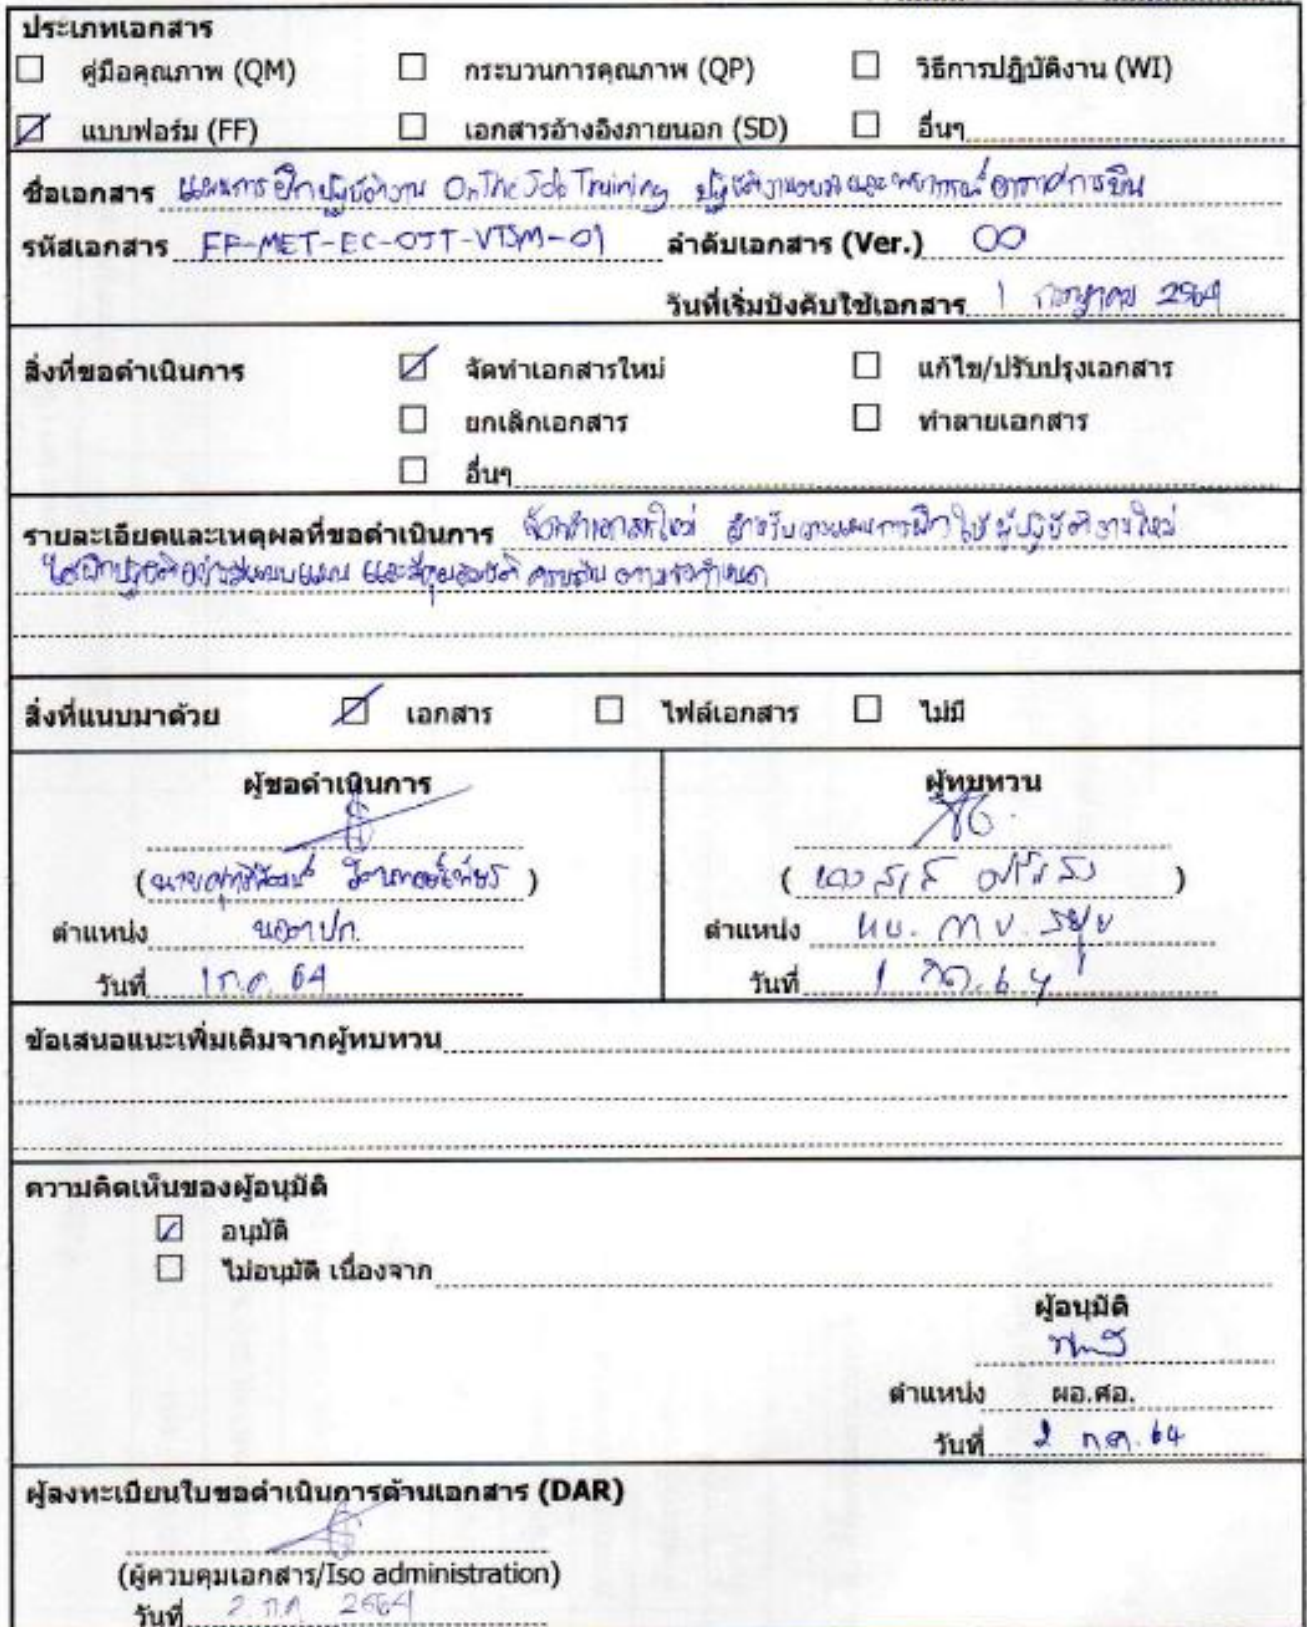 ประเภทเอกสาร
คู่มือคุณภาพ (QM) กระบวนการคุณภาพ (QP) วิธีการปฏิบัติงาน (WI)
แบบฟอร์ม (FF) เอกสารอ้างอิงภายนอก (SD) อื่นๆ
ชื่อเอกสาร แผนการฝึกปฏิบัติงาน On The Job Training ปฏิบัติงาน และพยากรณ์อากาศการบิน
รหัสเอกสาร FF-MET-EC-OJT-VTSM-01 ลำดับเอกสาร (Ver.) 00
วันที่เริ่มบังคับใช้เอกสาร 1 กรกฎาคม 2564
สิ่งที่ขอดำเนินการ จัดทำเอกสารใหม่ แก้ไข/ปรับปรุงเอกสาร
ยกเลิกเอกสาร ทำลายเอกสาร
อื่นๆ
รายละเอียดและเหตุผลที่ขอดำเนินการ จัดทำเอกสารใหม่ สำหรับวางแผนการฝึกให้ผู้ปฏิบัติงานใหม่
ได้ฝึกปฏิบัติอย่างมีแบบแผน และมีคุณสมบัติ ครบถ้วน ตามข้อกำหนด
สิ่งที่แนบมาด้วย เอกสาร ไฟล์เอกสาร ไม่มี
ผู้ขอดำเนินการ ผู้ทบทวน
ตำแหน่ง ตำแหน่ง
วันที่ 1 ก.ค. 64 วันที่ 1 กค. 64
ข้อเสนอแนะเพิ่มเติมจากผู้ทบทวน
ความคิดเห็นของผู้อนุมัติ
อนุมัติ
ไม่อนุมัติ เนื่องจาก
ผู้อนุมัติ
ตำแหน่ง ผอ.ศอ.
วันที่ 2 ก.ค. 64
ผู้ลงทะเบียนใบขอดำเนินการด้านเอกสาร (DAR)
(ผู้ควบคุมเอกสาร/Iso administration)
วันที่ 2 ก.ค 2564